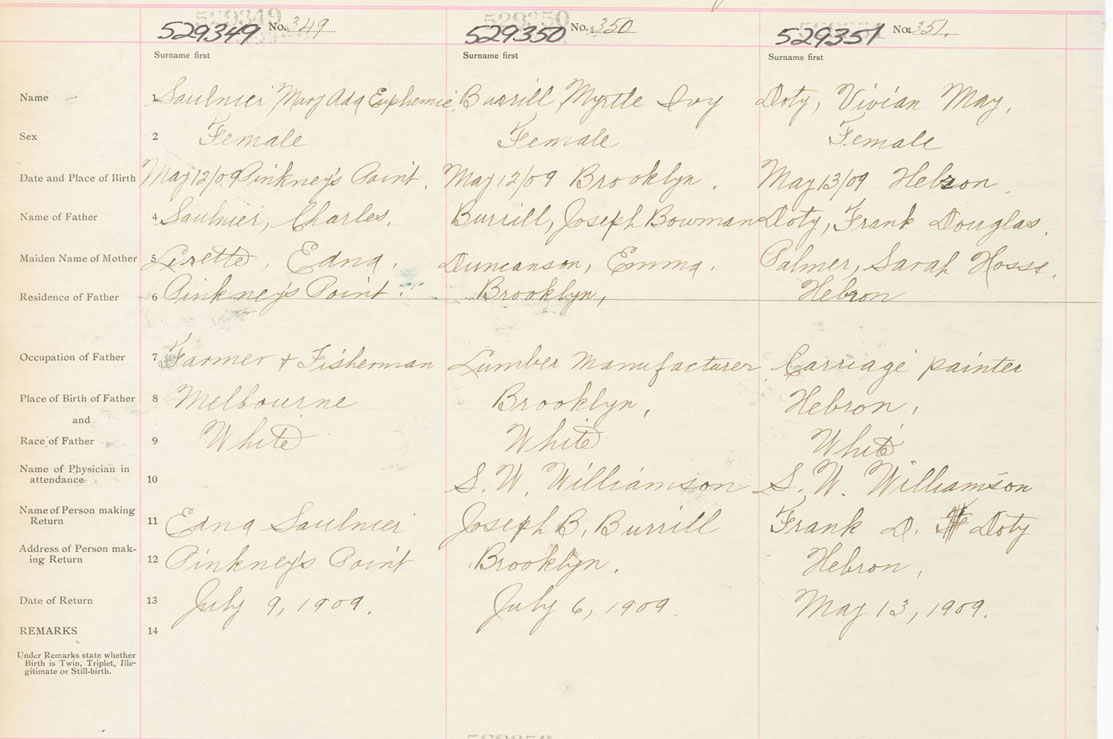 529349 No. 349 529350 No. 350 529351 No. 351.
Surname first Surname first Surname first
Name 1 Saulnier Mary Ada Euphemie Burrill Myrtle Ivy Doty, Vivian May.
Sex 2 Female Female Female
Date and Place of Birth May 12/09 Pinkney's Point. May 12/09 Brooklyn. May 13/09 Hebron.
Name of Father 4 Saulnier, Charles. Burrill, Joseph Bowman Doty, Frank Douglas.
Maiden Name of Mother 5 Edna. Duncanson, Emma. Palmer, Sarah
Residence of Father 6 Pinkney's Point. Brooklyn, Hebron
Occupation of Father 7 Farmer + Fisherman Lumber Manufacturer Carriage painter
Place of Birth of Father 8 Melbourne Brooklyn, Hebron,
and
Race of Father 9 White White White
Name of Physician in
attendance 10 S. W. Williamson S. W. Williamson
Name of Person making
Return 11 Edna Saulnier Joseph B. Burrill Frank D. Doty
Address of Person mak-
ing Return 12 Pinkney's Point Brooklyn. Hebron,
Date of Return 13 July 9, 1909. July 6, 1909. May 13, 1909.
REMARKS 14
Under Remarks state whether
Birth is Twin, Triplet, Ille-
gitimate or Still-birth.